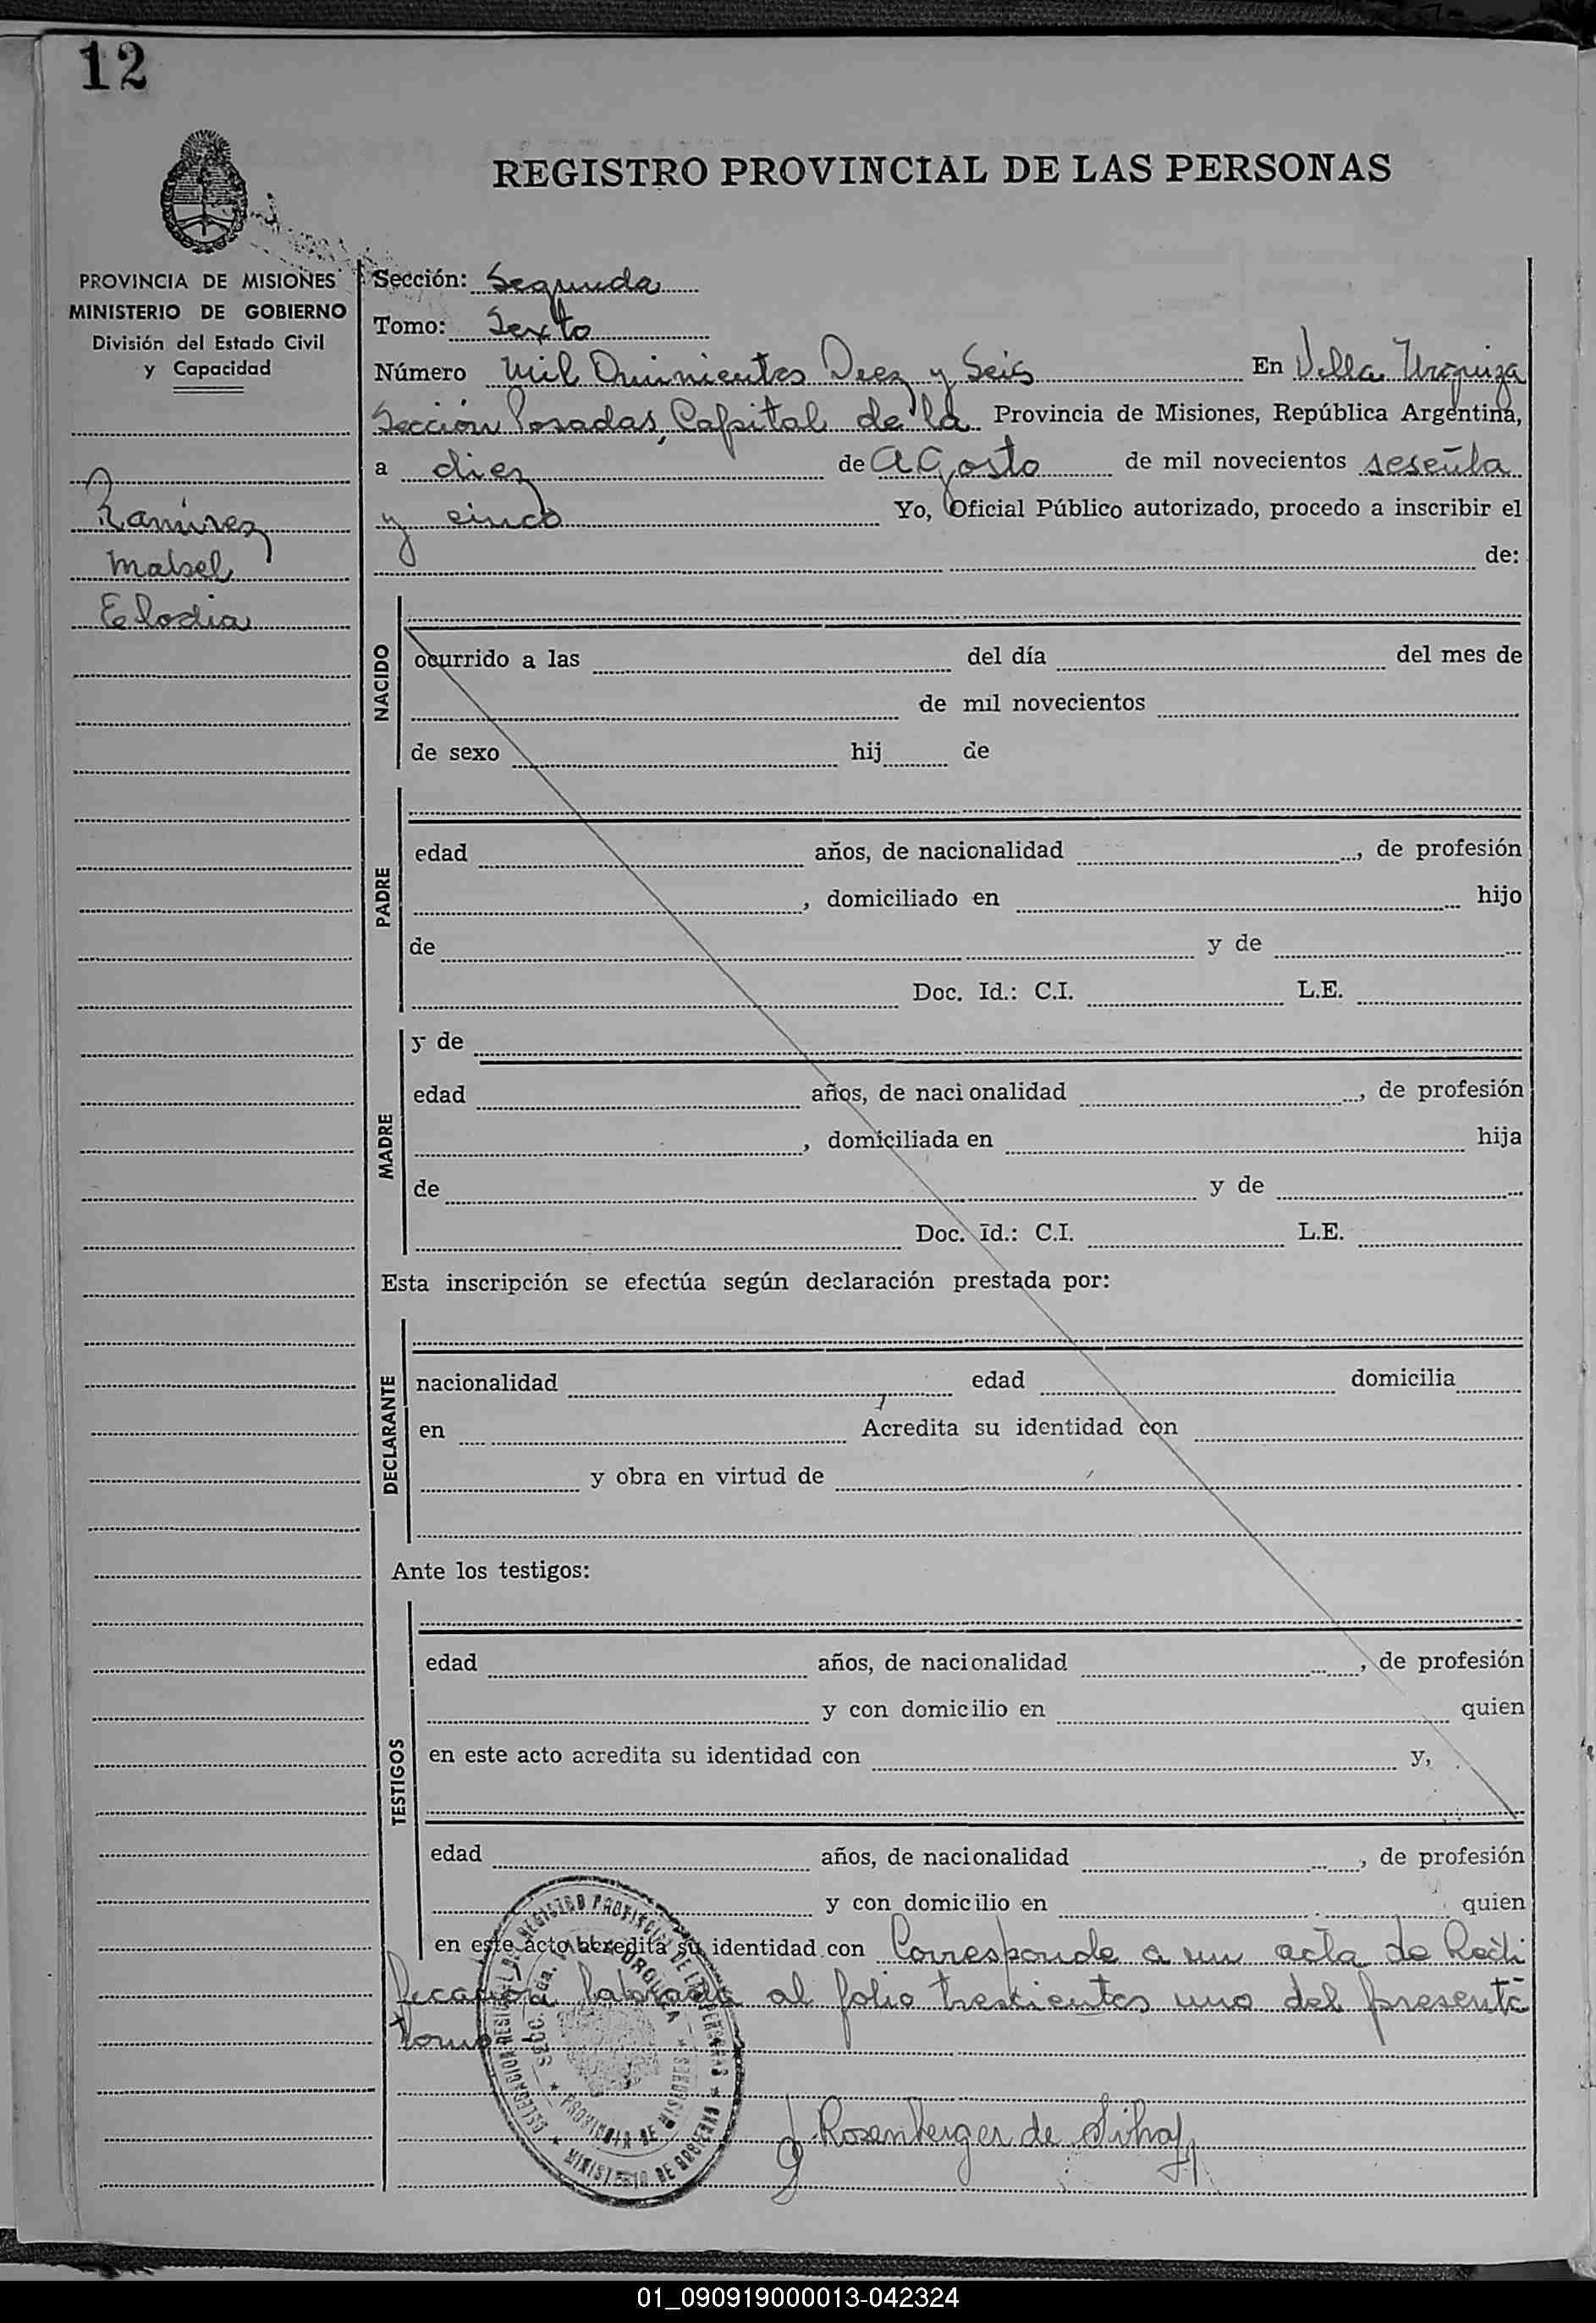 12
REGISTRO PROVINCIAL DE LAS PERSONAS
PROVINCIA DE MISIONES
MINISTERIO DE GOBIERNO
División del Estado Civil
y Capacidad
Ramirez
Mabel
Elodia
Sección: Segunda
Tomo: Sexto
Número Mil Quinientos Diez y Seis En Villa Urquiza
Sección Posadas, Capital de la Provincia de Misiones, República Argentina,
a diez de Agosto de mil novecientos sesenta
y cinco Yo, Oficial Público autorizado, procedo a inscribir el
de:
NACIDO
ocurrido a las del día del mes de
de mil novecientos
de sexo hij de
PADRE
edad años, de nacionalidad , de profesión
, domiciliado en hijo
de y de
Doc. Id.: C.I. L.E.
MADRE
y de
edad años, de nacionalidad , de profesión
, domiciliada en hija
de y de
Doc. Id.: C.I. L.E.
Esta inscripción se efectúa según declaración prestada por:
DECLARANTE
nacionalidad edad domicilia
en Acredita su identidad con
y obra en virtud de
Ante los testigos:
TESTIGOS
edad años, de nacionalidad , de profesión
y con domicilio en quien
en este acto acredita su identidad con y,
edad años, de nacionalidad , de profesión
y con domicilio en quien
en este acto acredita su identidad con Corresponde a un acta de Recti
ficación labrada al folio trescientos uno del presente
tomo
REGISTRO PROVINCIAL DE LAS PERSONAS
URQUIZA
PROVINCIA DE MISIONES
MINISTERIO DE GOBIERNO
Rosenberger de
01_090919000013-042324